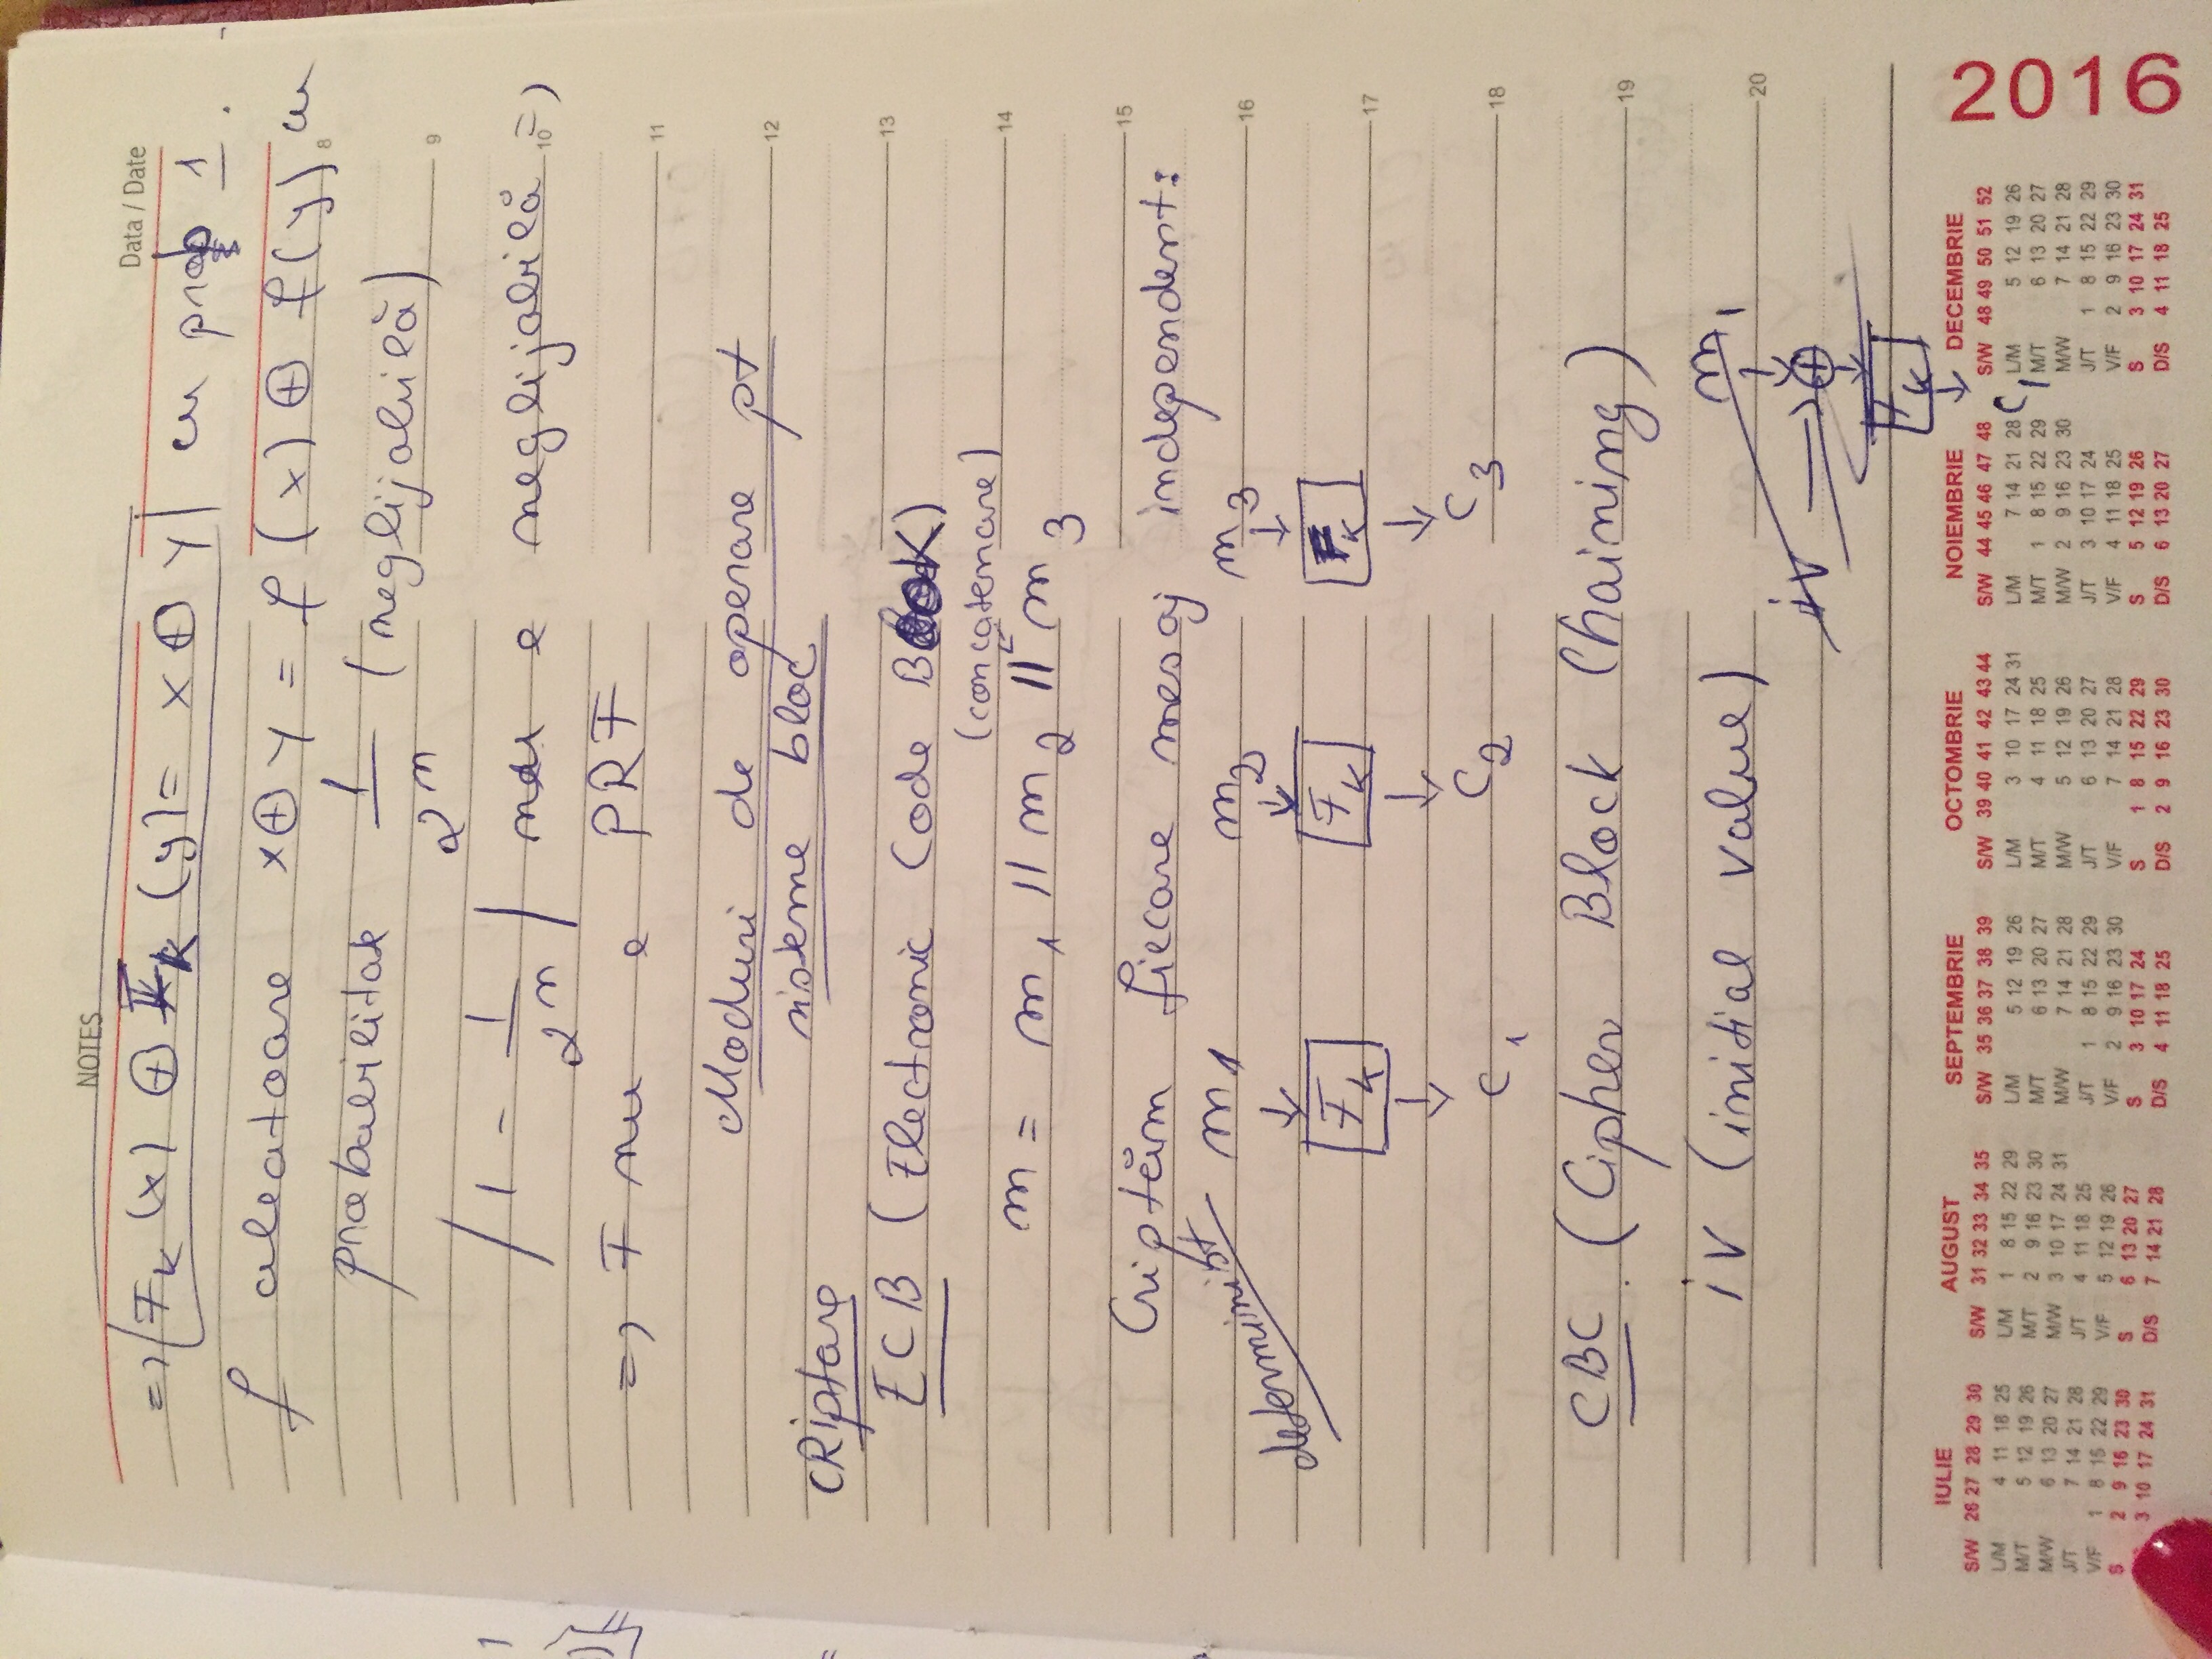 NOTES
Data / Date
=> F_k (x) ⊕ F_k (y) = x ⊕ y cu prob 1.
f aleatoare x ⊕ y = f (x) ⊕ f(y) cu
8
probabilitate 1/2^n (neglijabilă)
9
| 1 - 1/2^n | nu e neglijabilă =>
10
=> F nu e PRF
11
Moduri de operare pt
12
sisteme bloc
CRiptare
13
ECB (Electronic Code BooK)
(concatenare)
14
m = m_1 || m_2 || m_3
15
Criptăm fiecare mesaj independent:
determinist
m_1 m_2 m_3
16
F_k F_k F_k
17
c_1 c_2 c_3
18
CBC (Cipher Block Chaining)
19
iv (initial value) m_1
20
iv ⊕
F_k
c_1
IULIE
S/W 26 27 28 29 30
L/M 4 11 18 25
M/T 5 12 19 26
M/W 6 13 20 27
J/T 7 14 21 28
V/F 1 8 15 22 29
S 2 9 16 23 30
3 10 17 24 31
AUGUST
S/W 31 32 33 34 35
L/M 1 8 15 22 29
M/T 2 9 16 23 30
M/W 3 10 17 24 31
J/T 4 11 18 25
V/F 5 12 19 26
S 6 13 20 27
D/S 7 14 21 28
SEPTEMBRIE
S/W 35 36 37 38 39
L/M 5 12 19 26
M/T 6 13 20 27
M/W 7 14 21 28
J/T 1 8 15 22 29
V/F 2 9 16 23 30
S 3 10 17 24
D/S 4 11 18 25
OCTOMBRIE
S/W 39 40 41 42 43 44
L/M 3 10 17 24 31
M/T 4 11 18 25
M/W 5 12 19 26
J/T 6 13 20 27
V/F 7 14 21 28
S 1 8 15 22 29
D/S 2 9 16 23 30
NOIEMBRIE
S/W 44 45 46 47 48
L/M 7 14 21 28
M/T 1 8 15 22 29
M/W 2 9 16 23 30
J/T 3 10 17 24
V/F 4 11 18 25
S 5 12 19 26
D/S 6 13 20 27
DECEMBRIE
S/W 48 49 50 51 52
L/M 5 12 19 26
M/T 6 13 20 27
M/W 7 14 21 28
J/T 1 8 15 22 29
V/F 2 9 16 23 30
S 3 10 17 24 31
D/S 4 11 18 25
2016